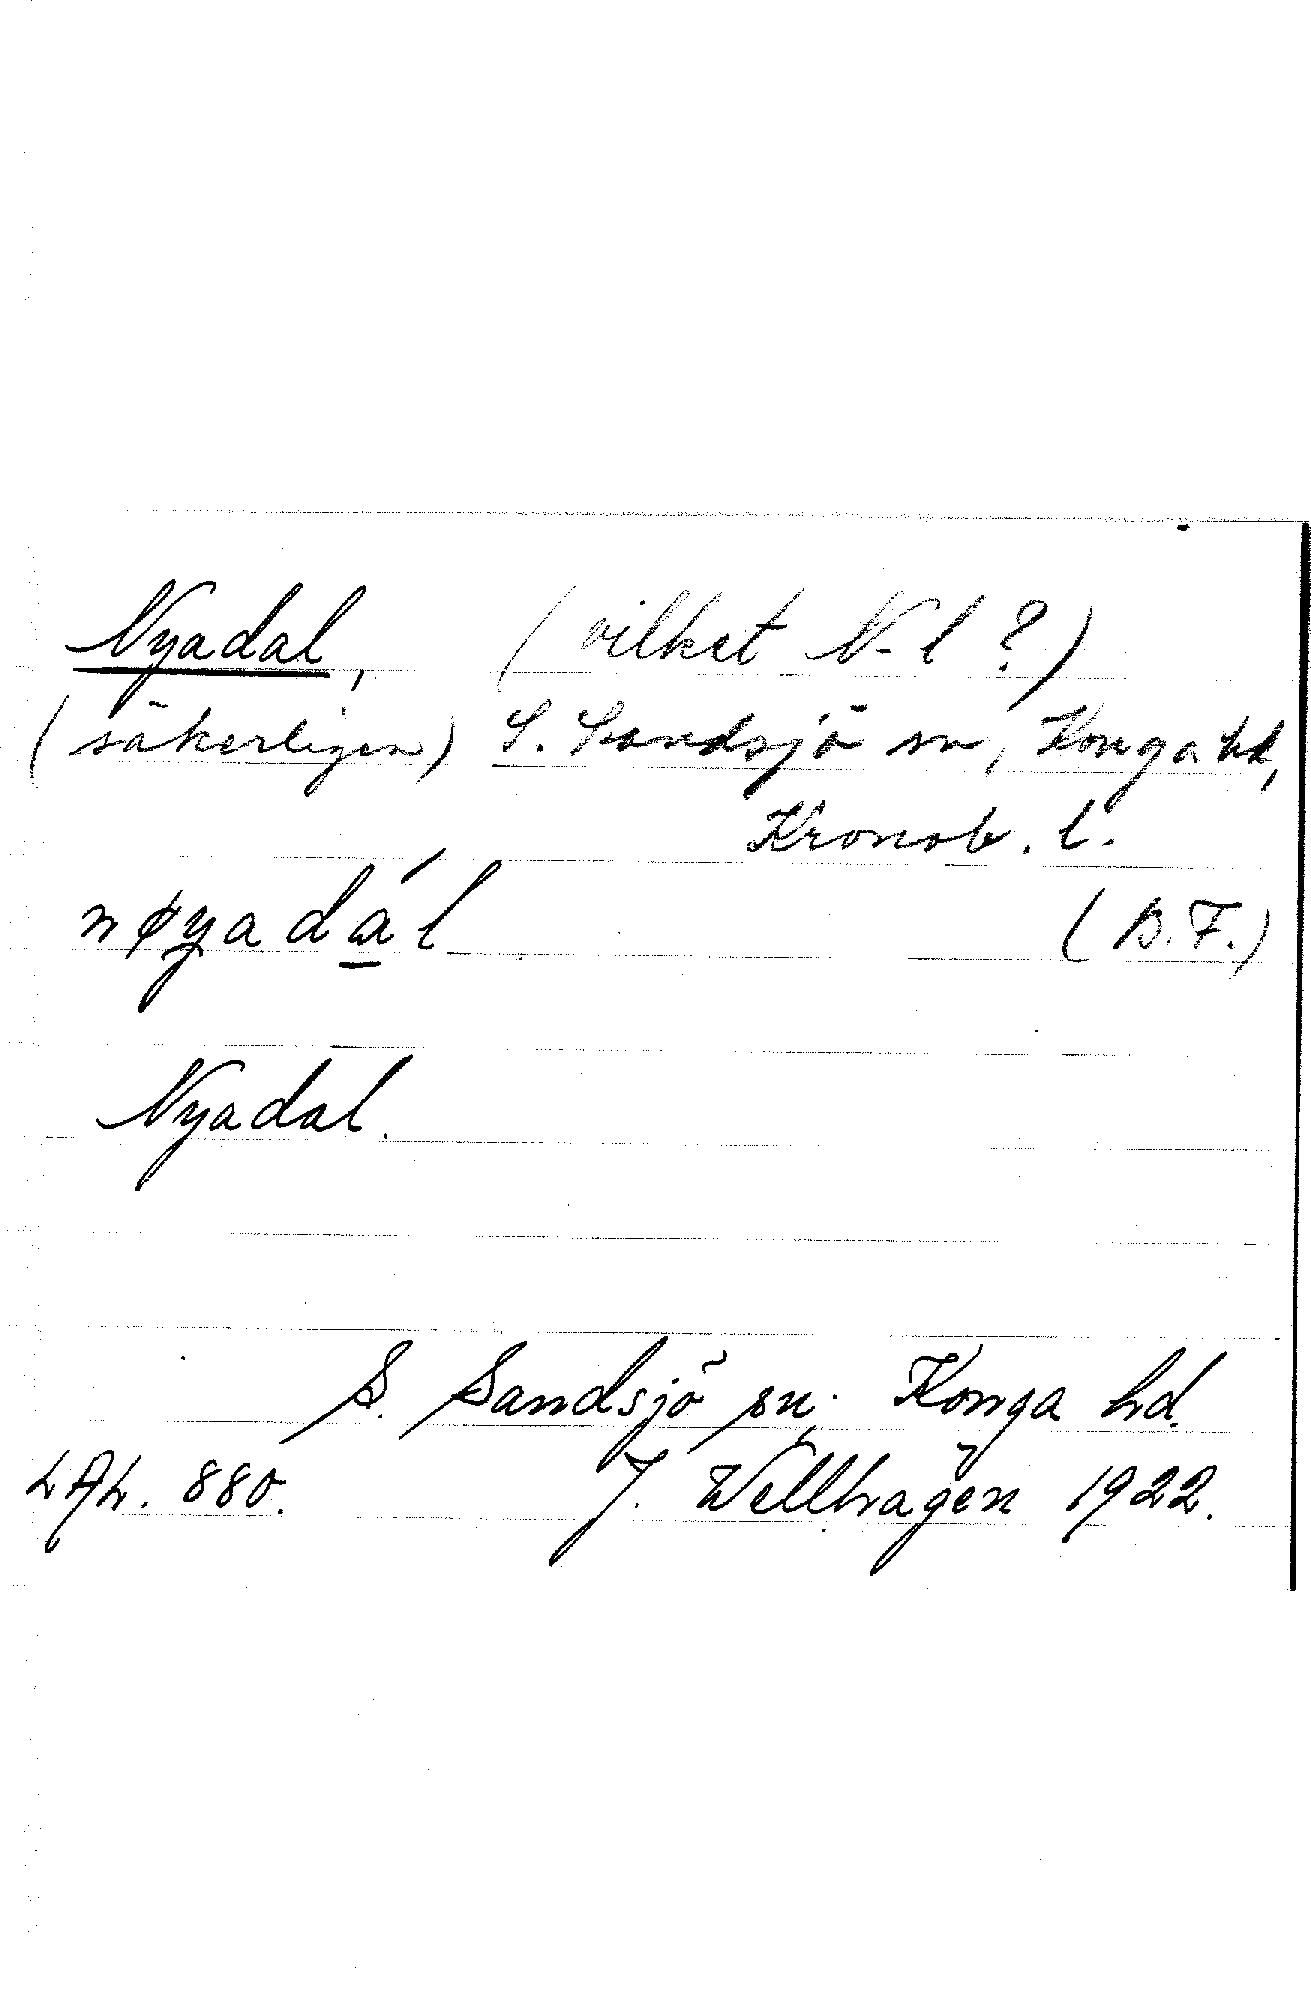 Nyadal, (vilket N-l ?)
(säkerligen) S. Sandsjö sn, Konga hd,
Kronob. l.
nøyadál (B.F.)
Nyadal.
S. Sandsjö sn. Konga hd.
LAL. 880. J. Wellhagen 1922.